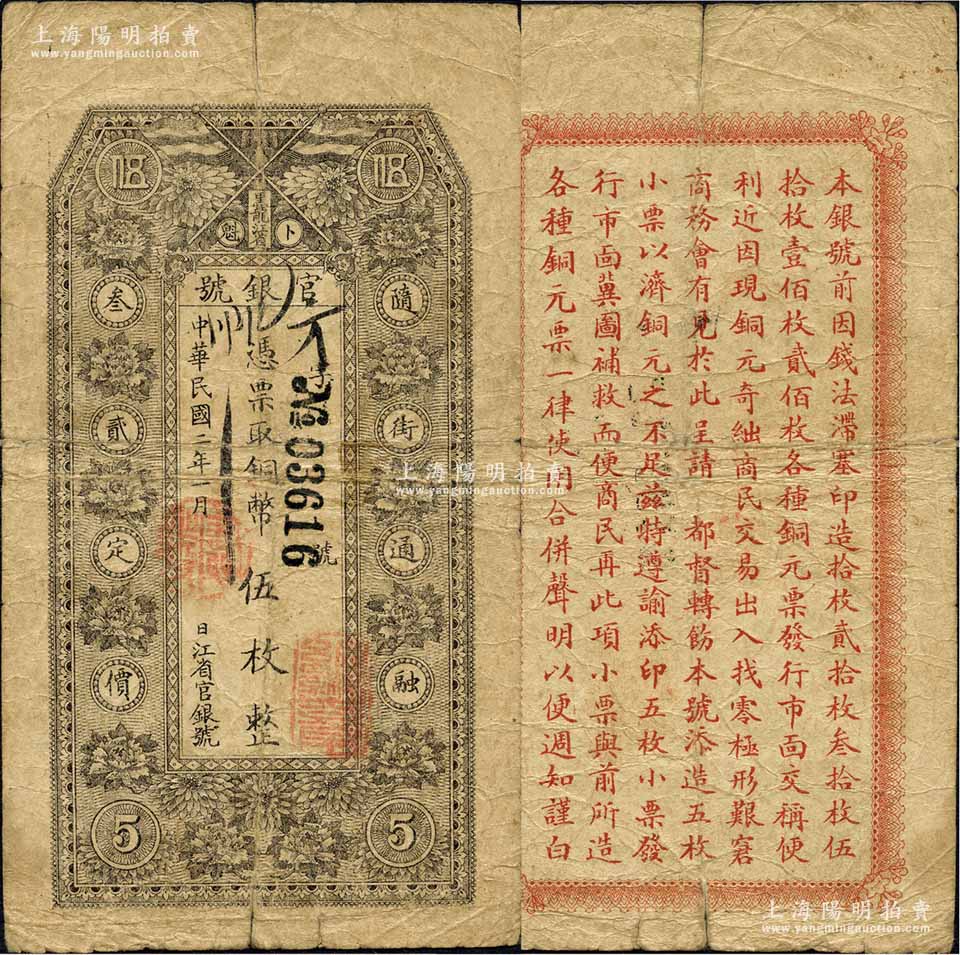 上海陽明拍賣
www.yangmingauction.com
伍
伍
黑龍江
卜魁
官銀號
隨街通融
字
№03616
號
憑票取銅幣伍枚整
中華民國二年一月 日江省官銀號
叁貳定價
5
5
本銀號前因錢法滯塞印造拾枚貳拾枚叁拾枚伍
拾枚壹佰枚貳佰枚各種銅元票發行市面交稱便
利近因現銅元奇絀商民交易出入找零極形艱窘
商務會有見於此呈請 都督轉飭本號添造五枚
小票以濟銅元之不足茲特遵諭添印五枚小票發
行市面冀圖補救而便商民再此項小票與前所造
各種銅元票一律使用合併聲明以便週知謹白
上海陽明拍賣
www.yangmingauction.com
上海陽明拍賣
www.yangmingauction.com